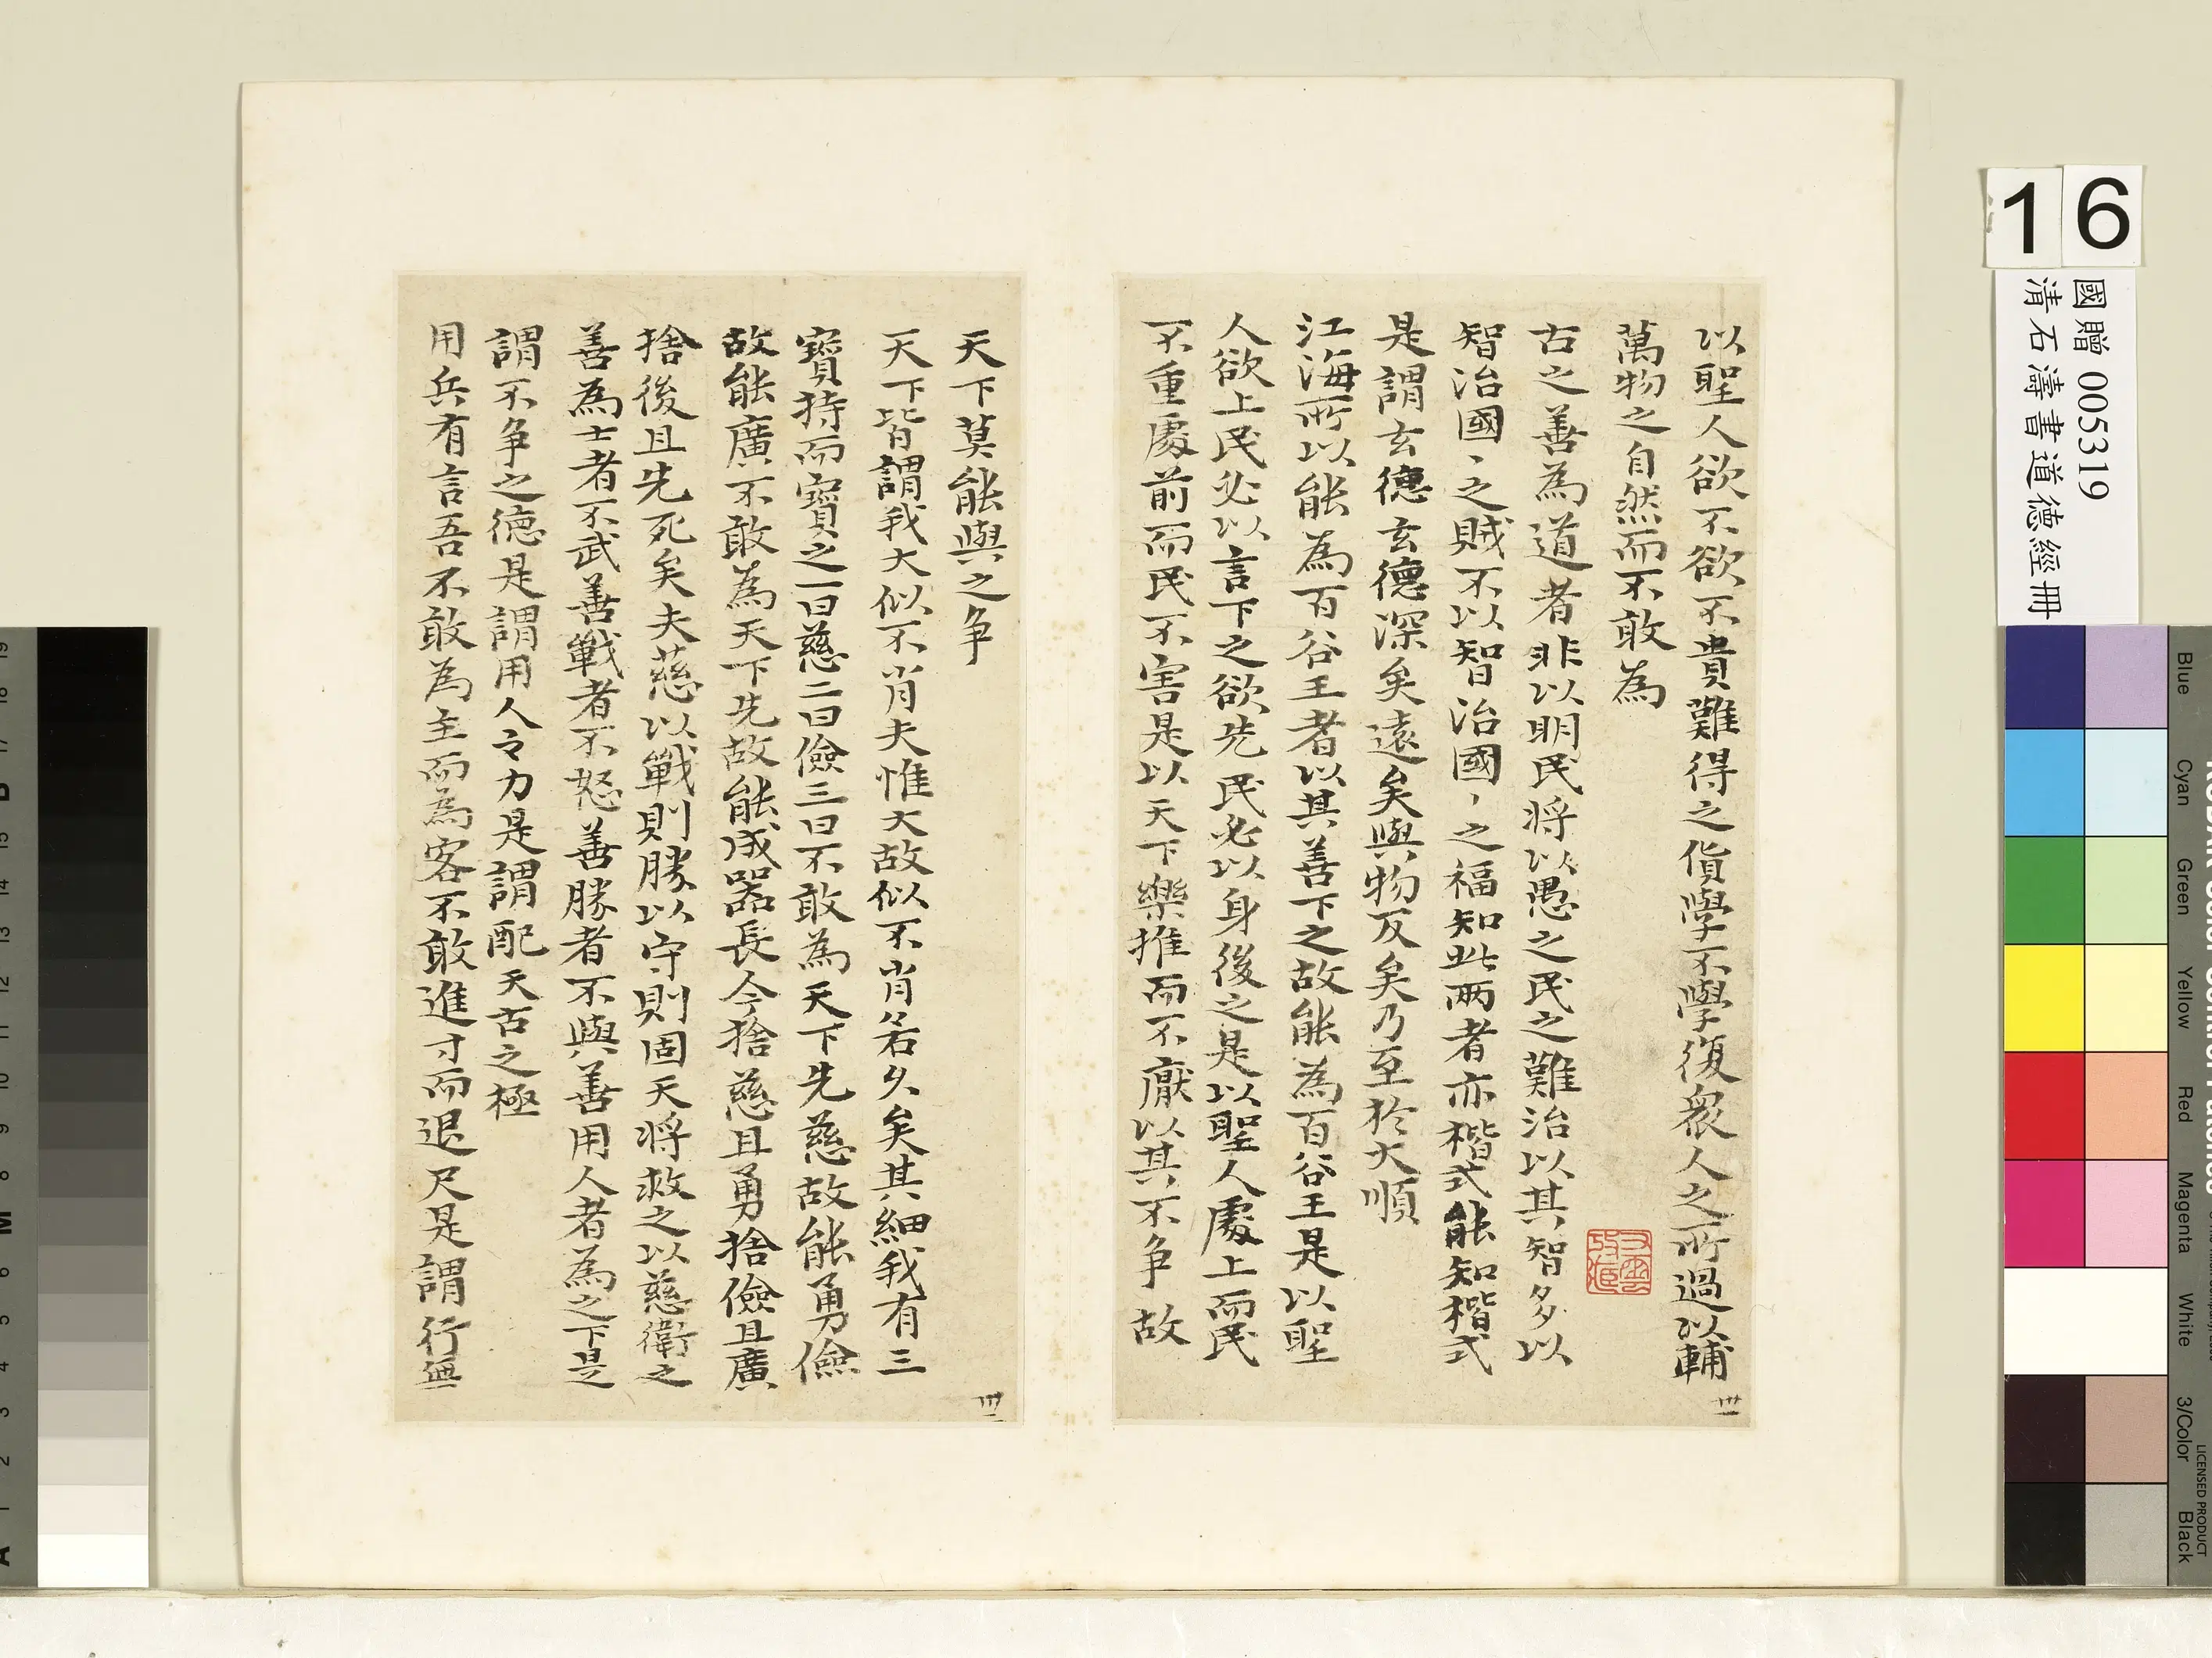 以聖人欲不欲不貴難得之貨學不學復衆人之所過以輔
萬物之自然而不敢為
古之善為道者非以明民將以愚之民之難治以其智多以
智治國、之賊不以智治國、之福知此兩者亦楷式能知楷式
是謂玄德玄德深矣遠矣與物反矣乃至於大順
江海所以能為百谷王者以其善下之故能為百谷王是以聖
人欲上民必以言下之欲先民必以身後之是以聖人處上而民
不重處前而民不害是以天下樂推而不厭以其不爭故
卅一
天下莫能與之爭
天下皆謂我大似不肖夫惟大故似不肖若久矣其細我有三
寶持而寶之一曰慈二曰儉三曰不敢為天下先慈故能勇儉
故能廣不敢為天下先故能成器長今捨慈且勇捨儉且廣
捨後且先死矣夫慈以戰則勝以守則固天將救之以慈衛之
善為士者不武善戰者不怒善勝者不與善用人者為之下是
謂不爭之德是謂用人之力是謂配天古之極
用兵有言吾不敢為主而為客不敢進寸而退尺是謂行無
16
國贈 005319
清石濤書道德經冊
Blue
Cyan
Green
Yellow
Red
Magenta
White
3/Color
Black
LICENSED PRODUCT
19
18
17
B
15
14
13
12
11
10
9
8
M
6
5
4
3
2
1
A